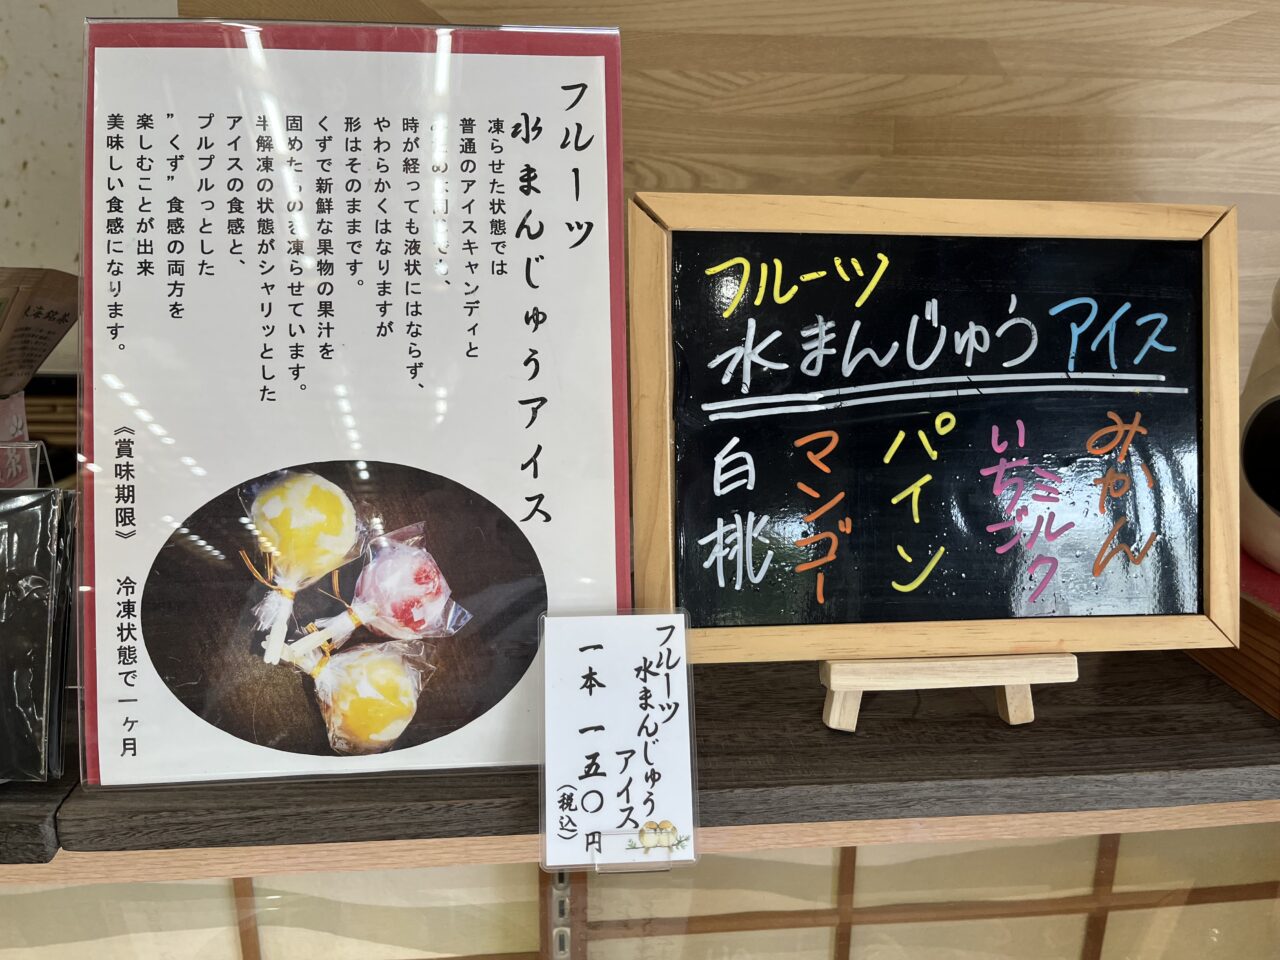 フルーツ
水まんじゅうアイス
凍らせた状態では
普通のアイスキャンディと
時が経っても液状にはならず、
やわらかくはなりますが
形はそのままです。
くずで新鮮な果物の果汁を
固めたものを凍らせています。
半解凍の状態がシャリッとした
アイスの食感と、
プルプルっとした
”くず”食感の両方を
楽しむことが出来
美味しい食感になります。
《賞味期限》 冷凍状態で一ヶ月
フルーツ
水まんじゅう
アイス
一本 一五〇円
(税込)
フルーツ
水まんじゅうアイス
みかん
いちご
ミルク
パイン
マンゴー
白桃